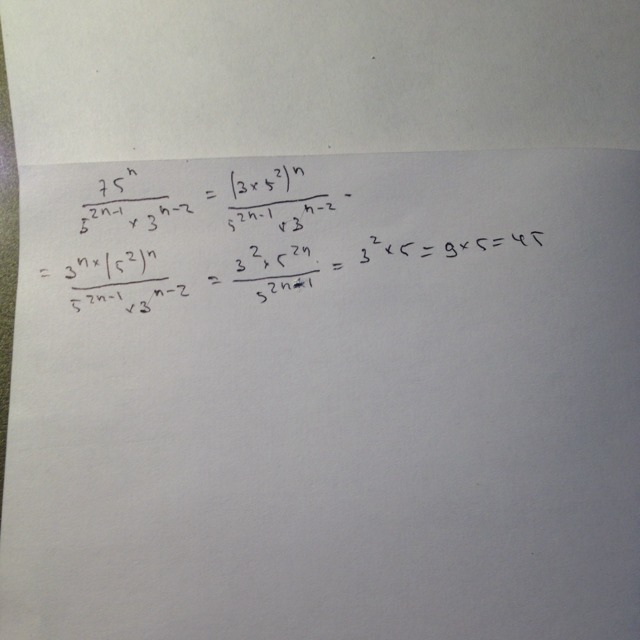 75ⁿ / 5²ⁿ⁻¹ × 3ⁿ⁻² = (3 × 5²)ⁿ / 5²ⁿ⁻¹ × 3ⁿ⁻² =
= 3ⁿ × (5²)ⁿ / 5²ⁿ⁻¹ × 3ⁿ⁻² = 3² × 5²ⁿ / 5²ⁿ⁻¹ = 3² × 5 = 9 × 5 = 45